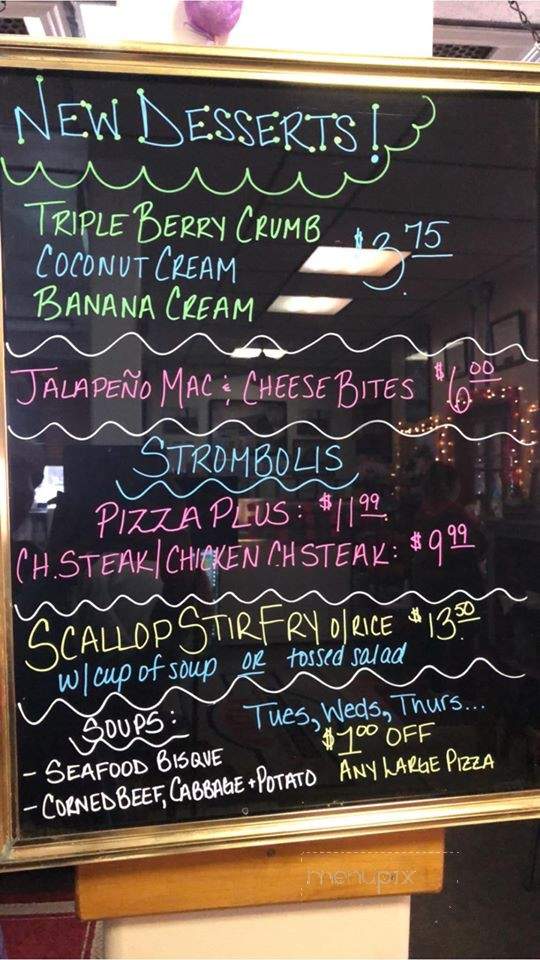 New Desserts!
Triple Berry Crumb
$3.75
Coconut Cream
Banana Cream
Jalapeño Mac & Cheese Bites $6.00
Strombolis
Pizza Plus: $11.99
Ch. Steak/Chicken Ch Steak: $9.99
Scallop Stir Fry o/Rice $13.50
w/ cup of soup or tossed salad
Soups:
- Seafood Bisque
- Corned Beef, Cabbage + Potato
Tues, Weds, Thurs...
$1.00 OFF
Any Large Pizza
menupix